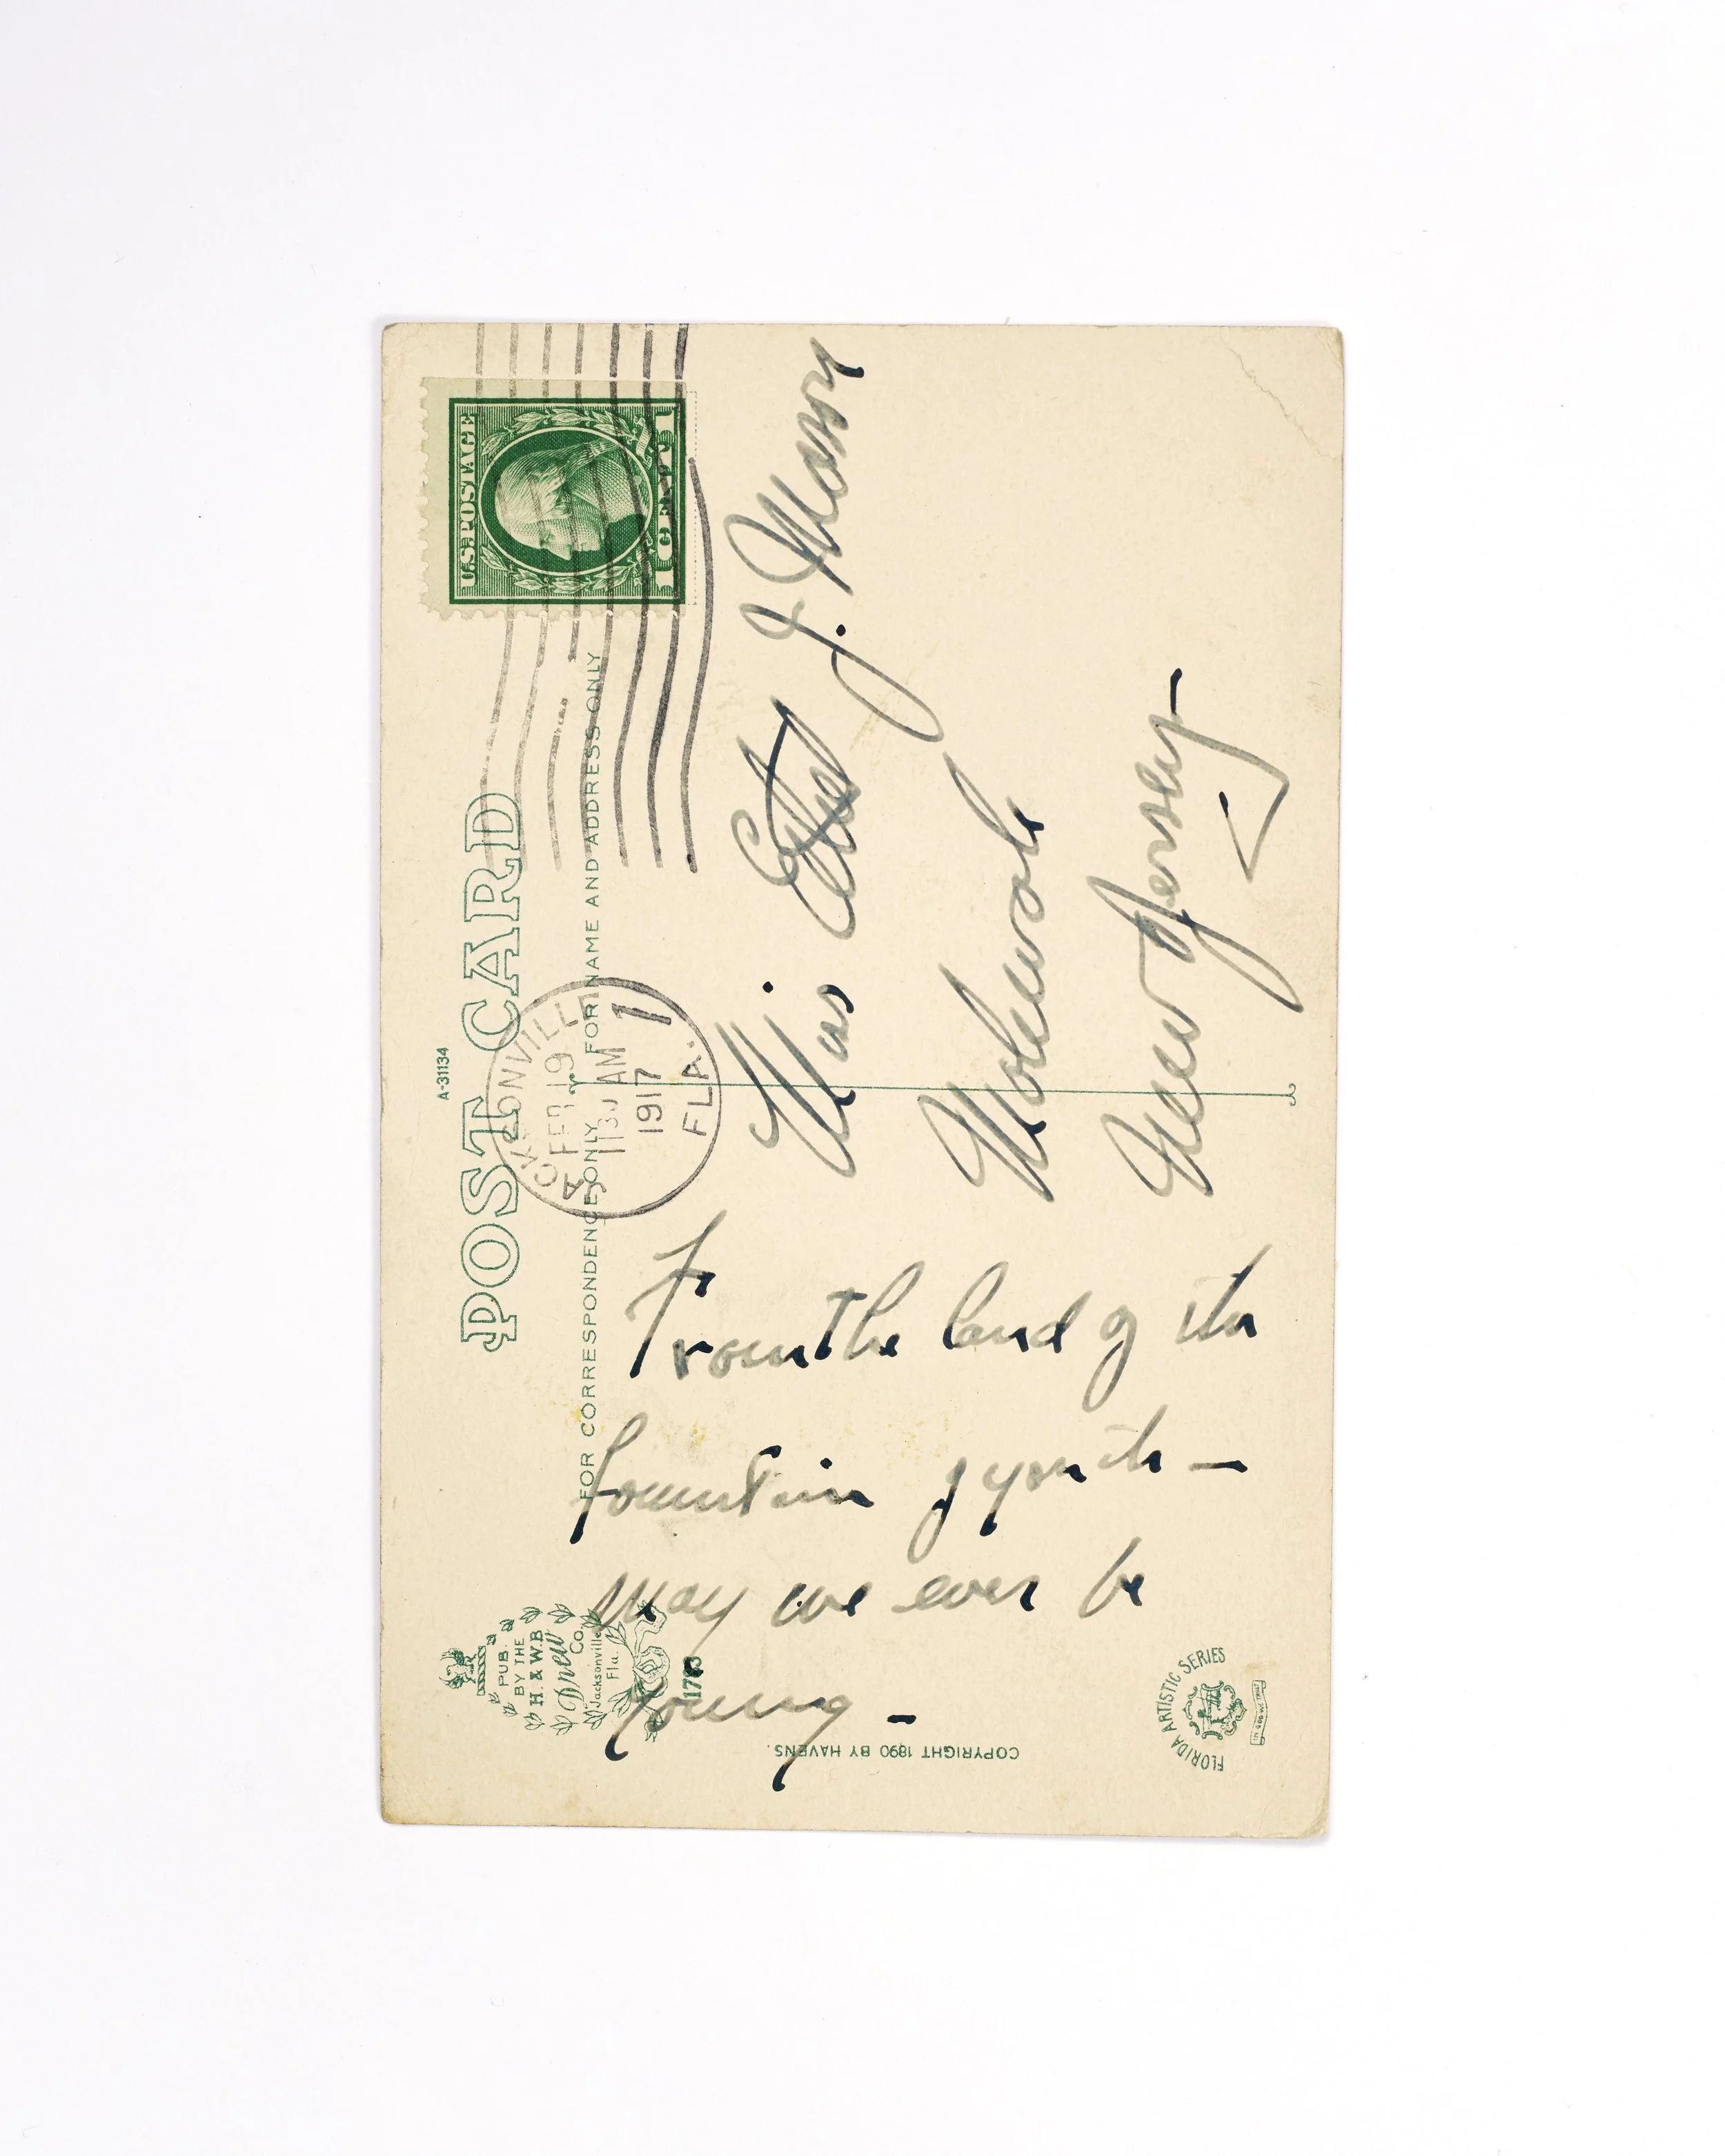 A-31134
POST CARD
FOR CORRESPONDENCE ONLY
FOR NAME AND ADDRESS ONLY
U.S. POSTAGE
1 CENT 1
JACKSONVILLE
FEB 19
1130 AM
1917
FLA.
1
PUB.
BY THE
H. & W. B.
Drew
Co.
Jacksonville
Fla.
From the land of the
fountain of youth —
may we ever be
young —
Miss Ethel J. Mason
New Jersey
COPYRIGHT 1890 BY HAVENS.
FLORIDA ARTISTIC SERIES